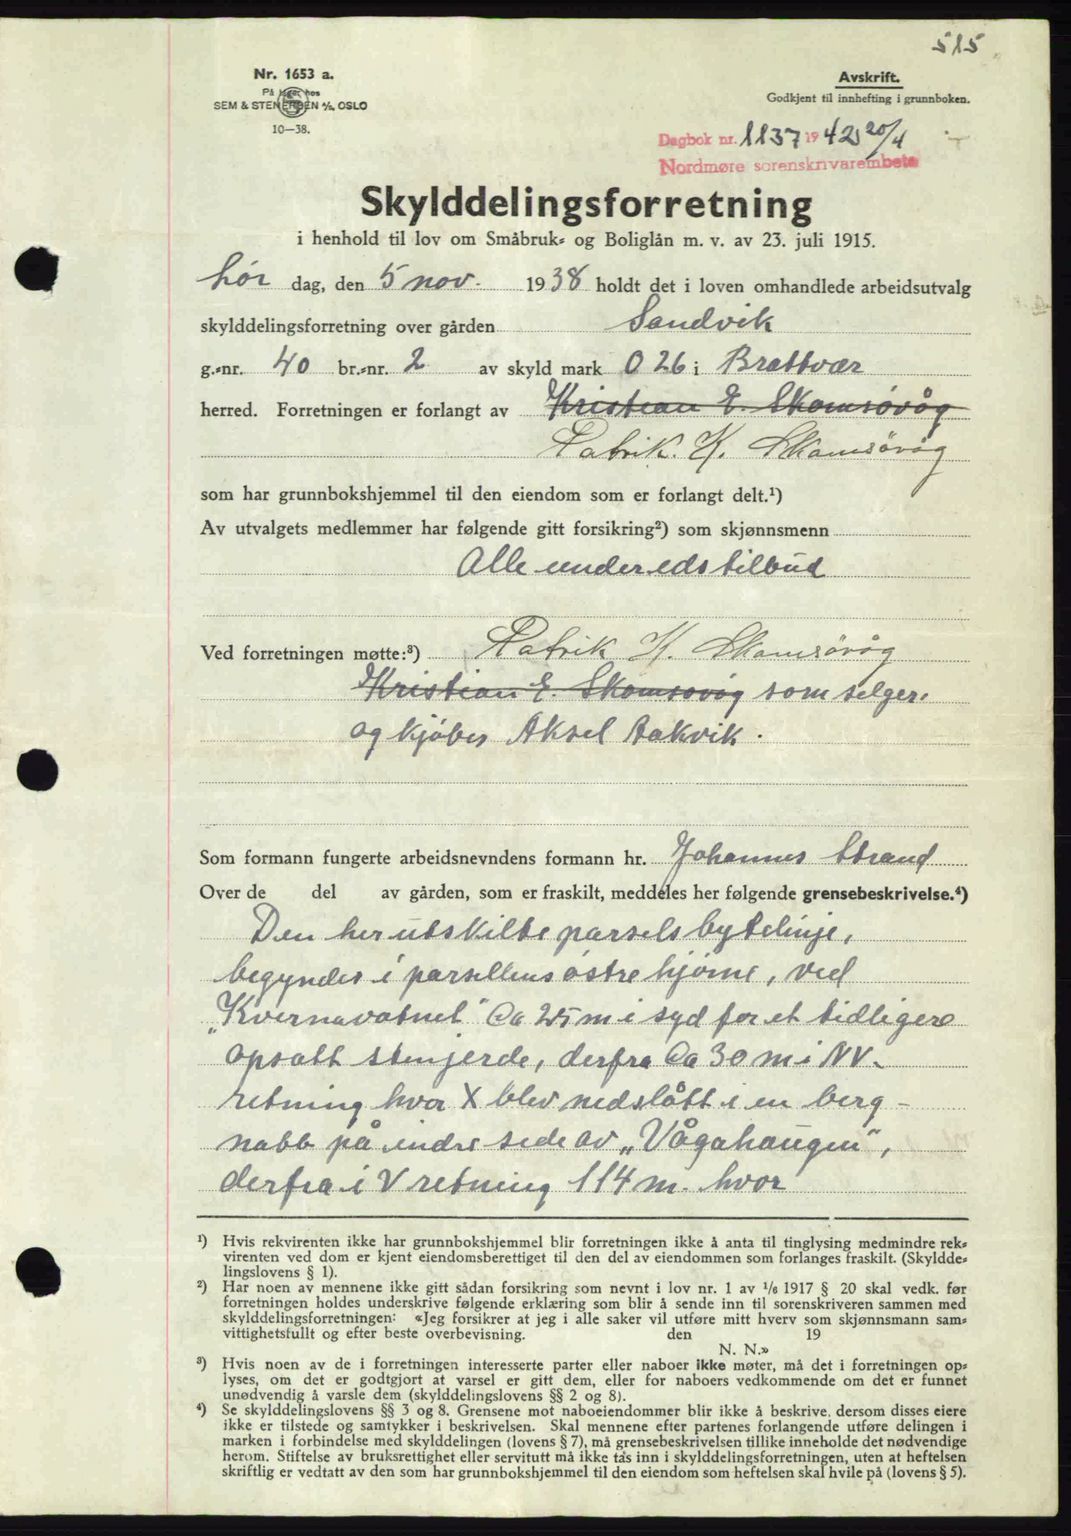 515
Nr. 1653 a.
På lager hos
SEM & STENERSEN A/S, OSLO
10—38.
Avskrift.
Godkjent til innhefting i grunnboken.
Dagbok nr. 1137 1942 20/4
Nordmøre sorenskrivarembete
Skylddelingsforretning
i henhold til lov om Småbruk- og Boliglån m. v. av 23. juli 1915.
Lør dag, den 5 nov. 1938 holdt det i loven omhandlede arbeidsutvalg
skylddelingsforretning over gården Sandvik
g.-nr. 40 br.-nr. 2 av skyld mark 0 26 i Brattvær
herred. Forretningen er forlangt av Kristian E. Skomsøvåg
Patrik K. Skomsövåg
som har grunnbokshjemmel til den eiendom som er forlangt delt.¹)
Av utvalgets medlemmer har følgende gitt forsikring²) som skjønnsmenn
Alle under eds tilbud
Ved forretningen møtte:³) Patrik K. Skomsövåg
Kristian E. Skomsøvåg som selger
og kjöber Aksel Aakvik.
Som formann fungerte arbeidsnevndens formann hr. Johannes Strand
Over de del av gården, som er fraskilt, meddeles her følgende grensebeskrivelse.⁴)
Den her utskilte parsels bytelinje,
begynder i parsellens östre hjörne, ved
"Kvernavatnet" Ca 25 m i syd for et tidligere
opsatt stengjerde, derfra Ca 30 m i NV.
retning hvor X blev nedslått i en berg-
nabb på indre side av „Vågahaugen",
derfra i V retning 114 m. hvor
¹) Hvis rekvirenten ikke har grunnbokshjemmel blir forretningen ikke å anta til tinglysing medmindre rek-
virenten ved dom er kjent eiendomsberettiget til den del av eiendommen som forlanges fraskilt. (Skyldde-
lingslovens § 1).
²) Har noen av mennene ikke gitt sådan forsikring som nevnt i lov nr. 1 av 1/6 1917 § 20 skal vedk. før
forretningen holdes underskrive følgende erklæring som blir å sende inn til sorenskriveren sammen med
skylddelingsforretningen: «Jeg forsikrer at jeg i alle saker vil utføre mitt hverv som skjønnsmann sam-
vittighetsfullt og efter beste overbevisning. den 19
N. N.»
³) Hvis noen av de i forretningen interesserte parter eller naboer ikke møter, må det i forretningen op-
lyses, om det er godtgjort at varsel er gitt dem, eller for naboers vedkommende om det er funnet
unødvendig å varsle dem (skylddelingslovens §§ 2 og 8).
⁴) Se skylddelingslovens §§ 3 og 8. Grensene mot naboeiendommer blir ikke å beskrive, dersom disses eiere
ikke er tilstede og samtykker i beskrivelsen. Skal mennene efter partenes forlangende utføre delingen i
marken i forbindelse med skylddelingen (lovens § 7), må grensebeskrivelsen tillike inneholde det nødvendige
herom. Stiftelse av bruksrettighet eller servitutt må ikke tas inn i skylddelingsforretningen, uten at heftelsen
skriftlig er vedtatt av den som har grunnbokshjemmel til den eiendom som heftelsen skal hvile på (lovens § 5).